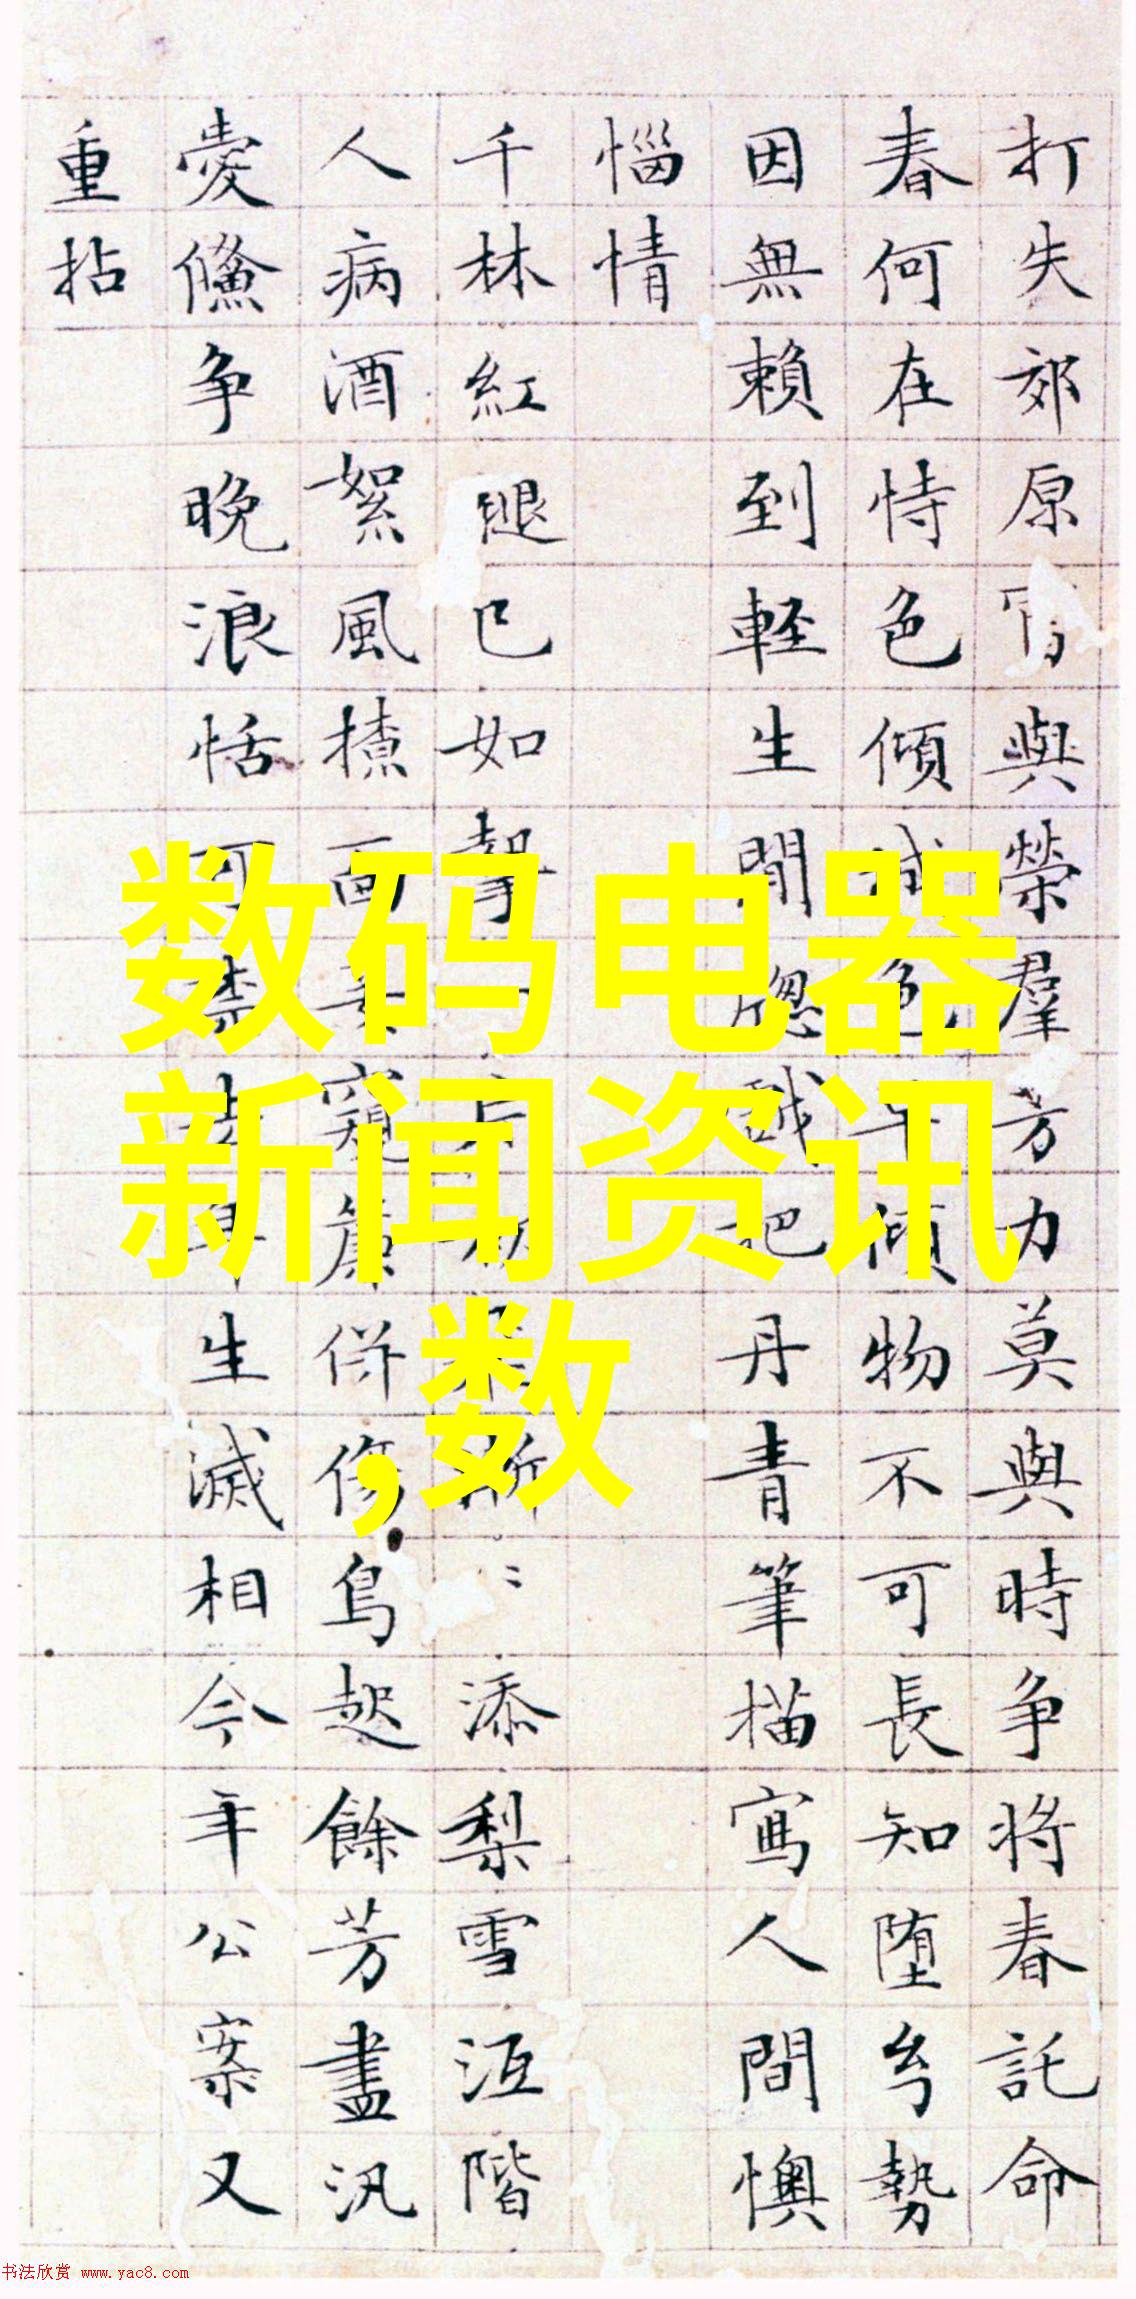 打失郊原 與榮羣芳力莫與時争將春託命
春何在恃色傾城色 傾物不可長知堕 勢
因無賴到軽生閒 戲把丹青筆描寫人間懊
惱情
千林紅腿已如 添梨雪沍階
人病酒絮風 面 窺簾併傷鳥起餘芳盡汎
愛 争晚浪恬可禁 早生滅相今年公案又
重拈
数码电器
新闻资讯
,数
书法欣赏 www.yac8.com